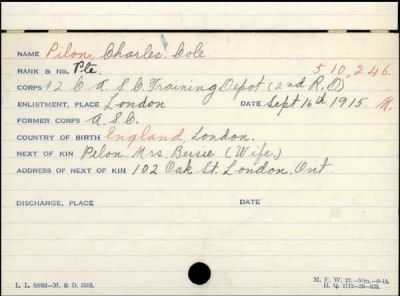 NAME Pilon, Charles Cole
RANK & No. Pte. 510,246.
CORPS #2 C A. S. C. Training Depot (2nd R, D)
ENLISTMENT, PLACE London DATE Sept 16th 1915. M.
FORMER CORPS A. S. C.
COUNTRY OF BIRTH England, London.
NEXT OF KIN Pilon, Mrs. Bessie (Wife)
ADDRESS OF NEXT OF KIN 102 Oak St. London. Ont
DISCHARGE, PLACE DATE
M. F. W. 22.